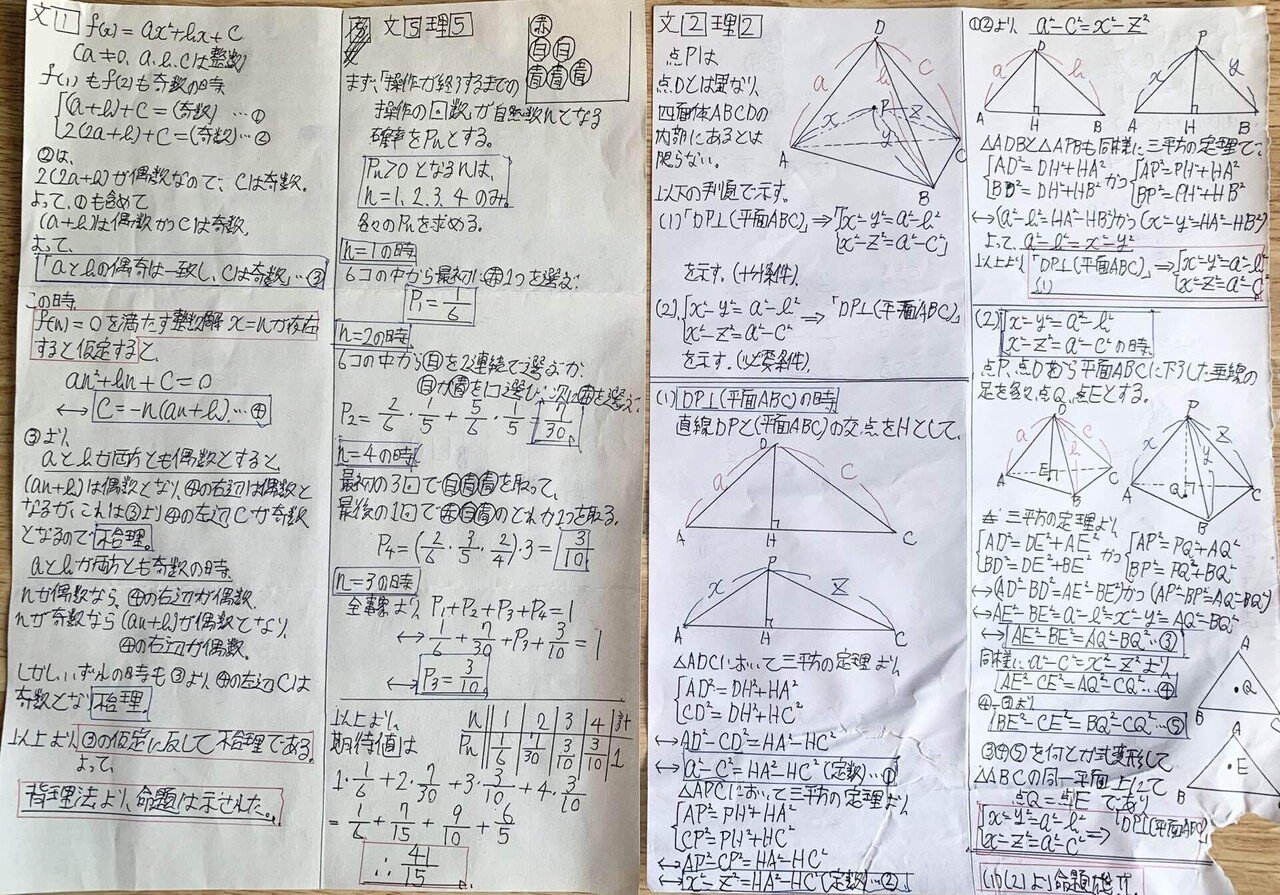 文1 f(x)=ax²+bx+c
(a≠0, a.b.cは整数)
f(1)もf(2)も奇数の時
{(a+b)+c=(奇数)…①
2(2a+b)+c=(奇数)…②
②は、
2(2a+b)が偶数なので、cは奇数。
よって、①も含めて
(a+b)は偶数かつcは奇数。
よって、
「aとbの偶奇は一致し、cは奇数」…③
この時、
f(n)=0を満たす整数解x=nが存在
すると仮定すると、
an²+bn+c=0
↔c=-n(an+b)…④
③より、
aとbが両方とも偶数とすると
(an+b)は偶数となり、④の右辺は偶数と
なるが、これは③より④の左辺cが奇数
となるので不合理。
aとbが両方とも奇数の時、
nが偶数なら、④の右辺が偶数。
nが奇数なら(an+b)が偶数となり、
④の右辺が偶数。
しかし、いずれの時も③より、④の左辺cは
奇数となり不合理。
以上より、③の仮定に反して不合理である。
よって、
背理法より、命題は示された。
文5理5
赤
白白
青青青
まず、「操作が終了するまでの
操作の回数」が自然数nとなる
確率をPnとする。
Pn>0となるnは、
n=1、2、3、4のみ。
各々のPnを求める。
n=1の時
6コの中から最初に赤1つを選ぶ:
P₁=1/6
n=2の時
6コの中から白を2連続で選ぶか、
白か青を1コ選び、次に赤を選ぶ:
P₂=2/6・1/5+5/6・1/5=7/30
n=4の時
最初の3回で白青青を取って、
最後の1回で赤白青のどれか1つを取る。
P₄=(2/6・3/5・2/4)・3=3/10
n=3の時
全事象より、P₁+P₂+P₃+P₄=1
↔1/6+7/30+P₃+3/10=1
↔P₃=3/10
以上より、
期待値は
n 1 2 3 4 計
Pn 1/6 7/30 3/10 3/10 1
1・1/6+2・7/30+3・3/10+4・3/10
=1/6+7/15+9/10+6/5
∴41/15
文2理2
点Pは
点Dとは異なり、
四面体ABCDの
内部にあるとは
限らない。
D
a b c
P
x y z
A B C
以下の手順で示す。
(1)「DP⊥(平面ABC)」⇒「{x²-y²=a²-b²
x²-z²=a²-c²」
を示す。(十分条件)
(2){x²-y²=a²-b²
x²-z²=a²-c²⇒「DP⊥(平面ABC)」
を示す。(必要条件)
(1)DP⊥(平面ABC)の時、
直線DPと(平面ABC)の交点をHとして、
D
a c
A H C
P
x z
A H C
△ADCにおいて三平方の定理より、
{AD²=DH²+HA²
CD²=DH²+HC²
↔AD²-CD²=HA²-HC²
↔a²-c²=HA²-HC²(定数)…①
△APCにおいて三平方の定理より、
{AP²=PH²+HA²
CP²=PH²+HC²
↔AP²-CP²=HA²-HC²
↔x²-z²=HA²-HC²(定数)…②
①②より、a²-c²=x²-z²
D P
a b x y
A H B A H B
△ADBと△APBも同様に三平方の定理で、
{AD²=DH²+HA²
BD²=DH²+HB²かつ{AP²=PH²+HA²
BP²=PH²+HB²
↔(a²-b²=HA²-HB²)かつ(x²-y²=HA²-HB²)
よって、a²-b²=x²-y²
以上より「DP⊥(平面ABC)」⇒{x²-y²=a²-b²
x²-z²=a²-c²
(2){x²-y²=a²-b²
x²-z²=a²-c²の時、
点P、点Dから平面ABCに下ろした垂線の
足を各々点Q、点Eとする。
D P
a b c x y z
A E B C A Q B C
三平方の定理より、
{AD²=DE²+AE²
BD²=DE²+BE²かつ{AP²=PQ²+AQ²
BP²=PQ²+BQ²
↔(AD²-BD²=AE²-BE²)かつ(AP²-BP²=AQ²-BQ²)
↔AE²-BE²=a²-b²=x²-y²=AQ²-BQ²
↔AE²-BE²=AQ²-BQ²…③
同様にa²-c²=x²-z²より、
AE²-CE²=AQ²-CQ²…④
④、③より
BE²-CE²=BQ²-CQ²…⑤
A
Q
B C
A
E
B
③④⑤を何とか式変形して
△ABCの同一平面上にて
点Q=点Eであり
{x²-y²=a²-b²
x²-z²=a²-c²⇒「DP⊥(平面ABC)」
(1)(2)より命題